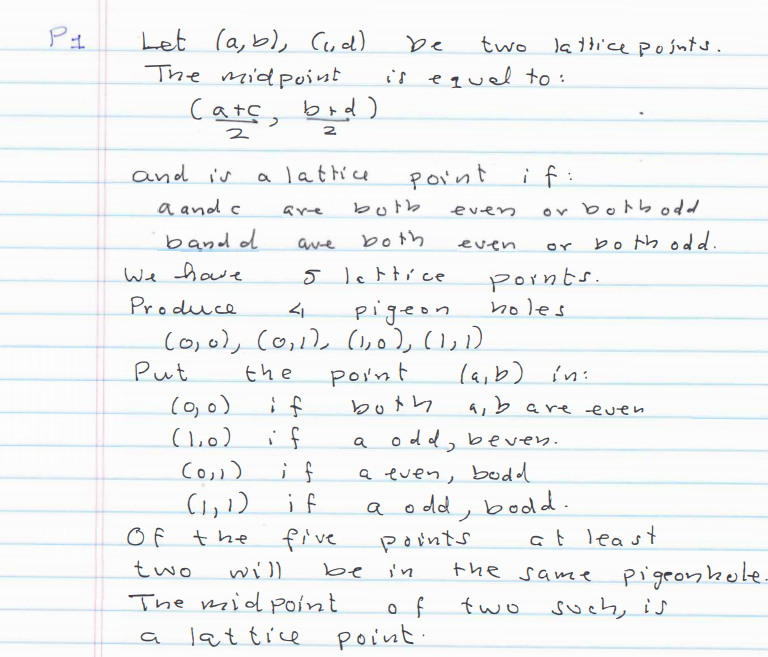 P1 Let (a,b), (c,d) be two lattice points.
The midpoint is equal to:
( a+c/2 , b+d/2 )
and is a lattice point if:
a and c are both even or both odd
b and d are both even or both odd.
We have 5 lattice points.
Produce 4 pigeon holes
(0,0), (0,1), (1,0), (1,1)
Put the point (a,b) in:
(0,0) if both a,b are even
(1,0) if a odd, b even.
(0,1) if a even, b odd
(1,1) if a odd, b odd.
Of the five points at least
two will be in the same pigeonhole.
The midpoint of two such, is
a lattice point.